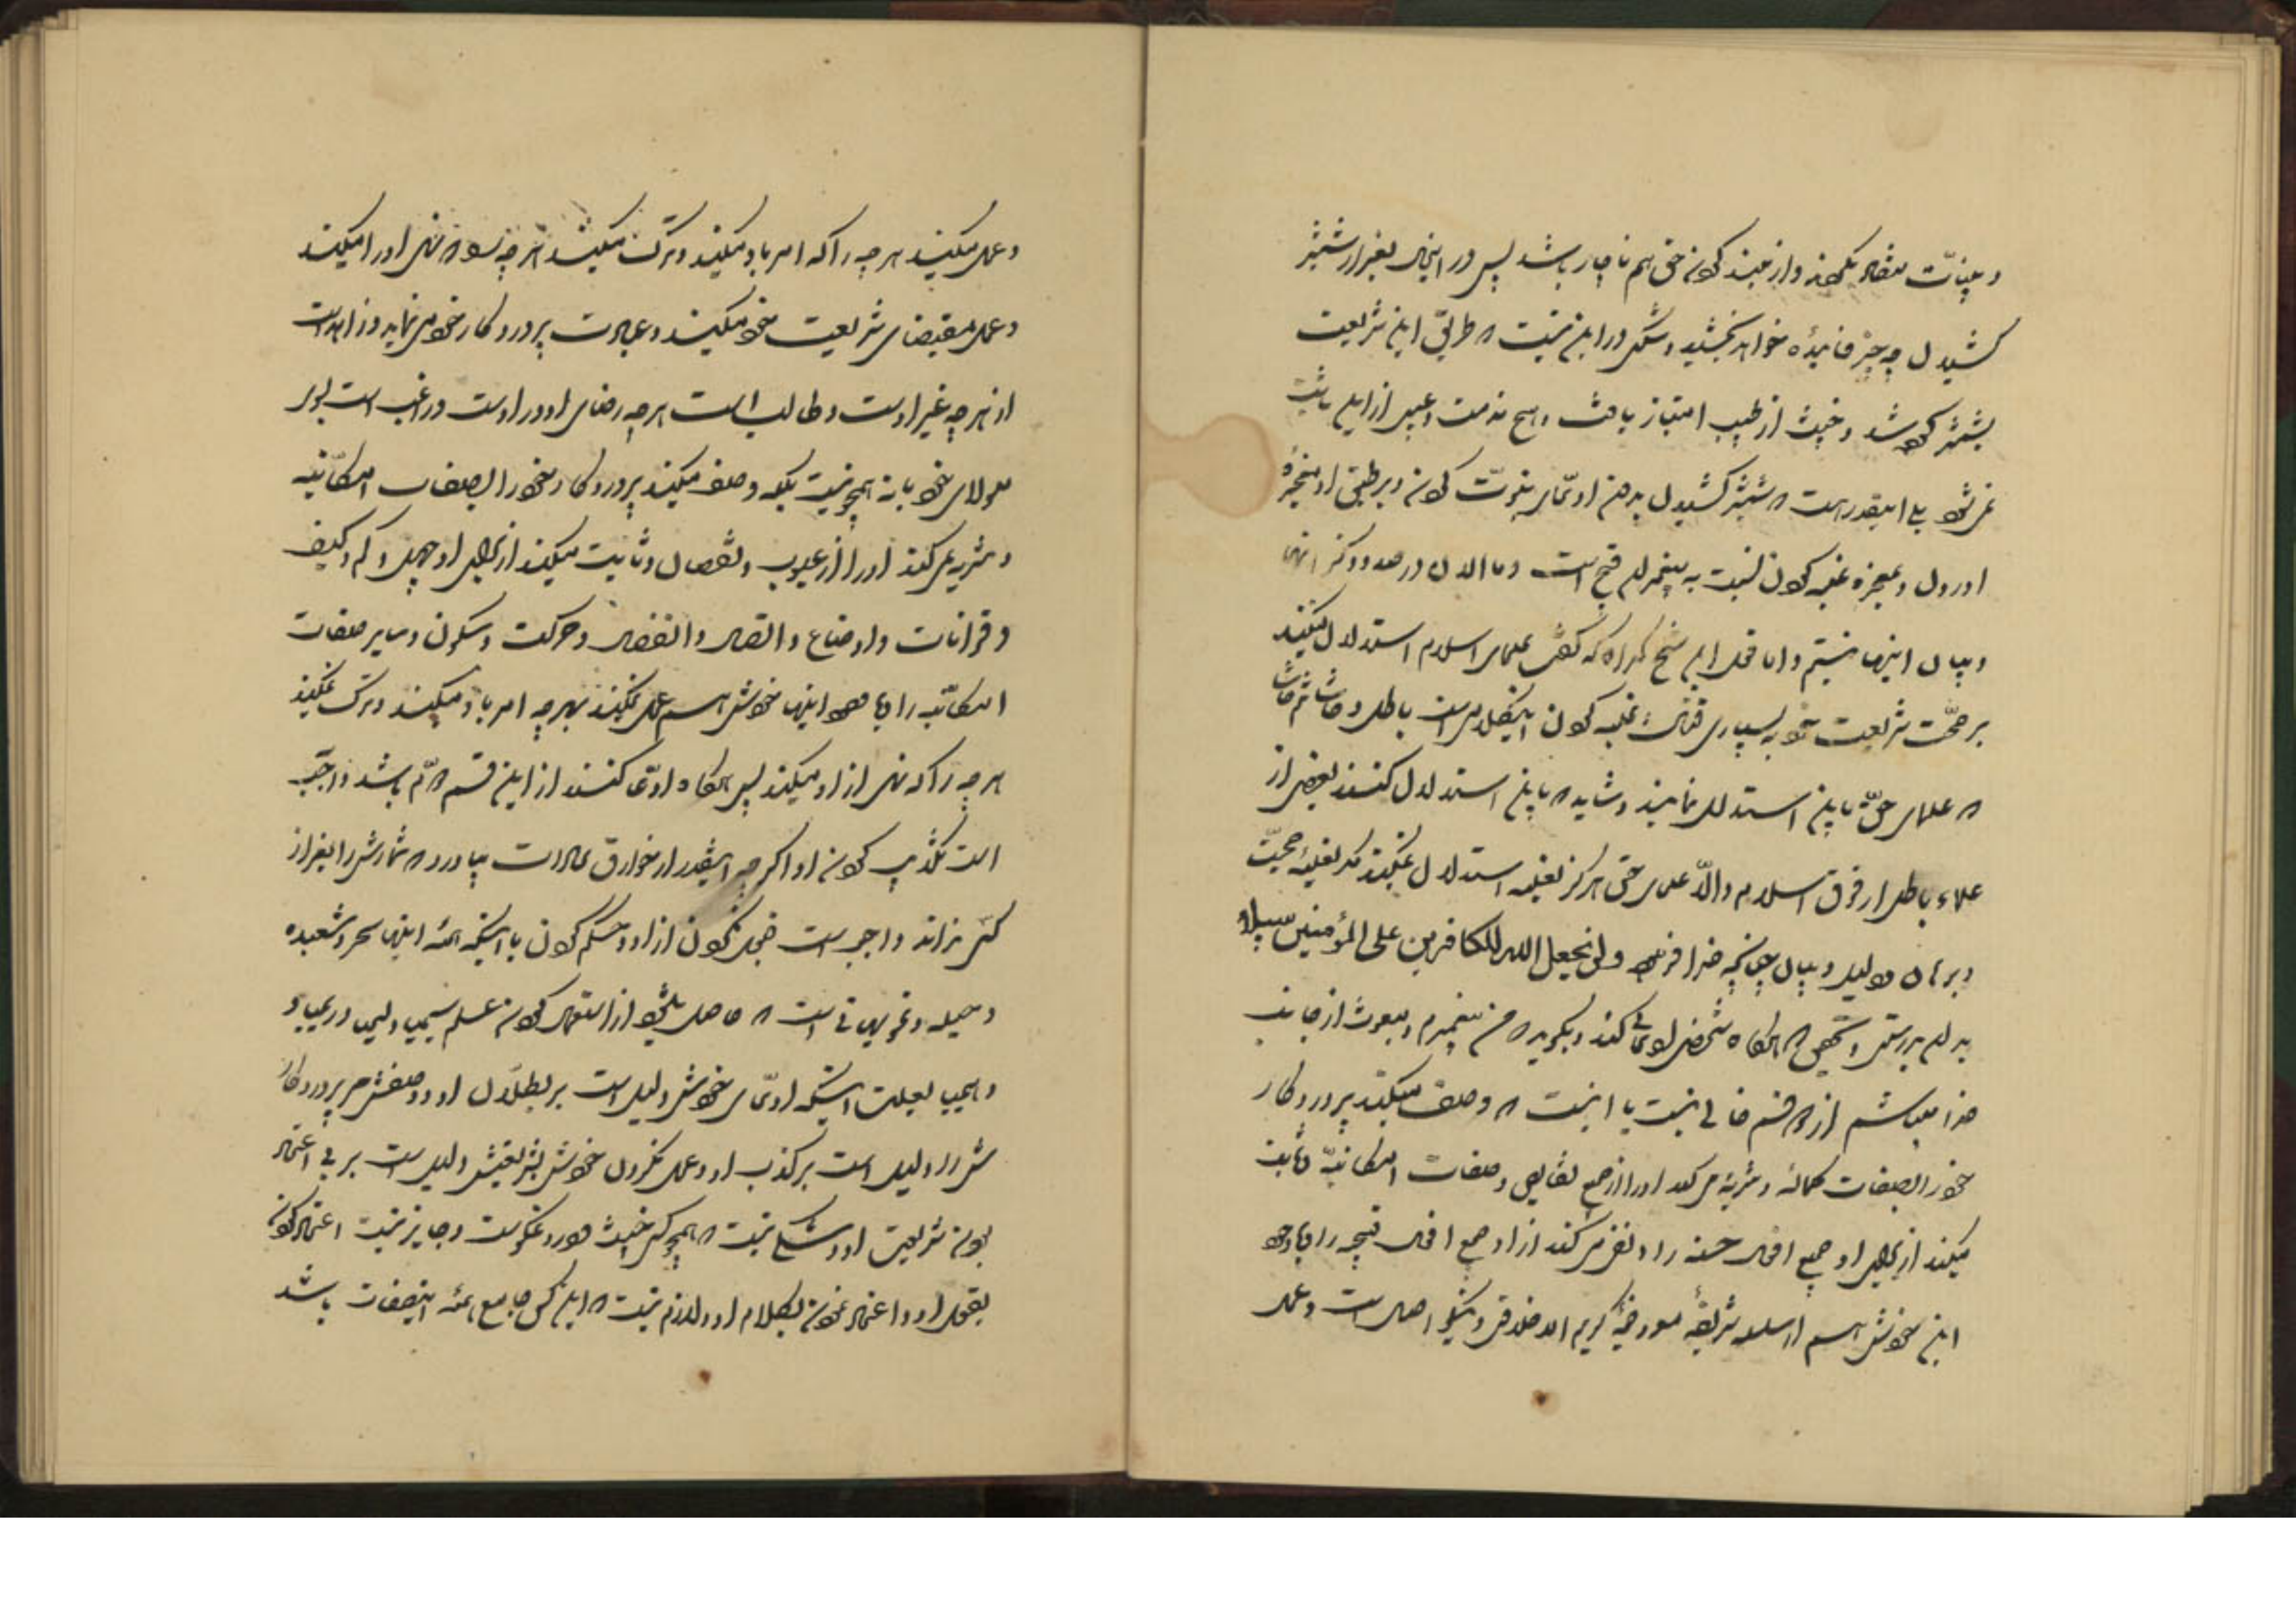 و بینات متضاد نکند و از عهده کردن حق هم ناچار باشد پس در اینحال بغیر از شمشیر
کشیدن چه چیز فائیده خواهد بخشید و شکی در این نیست که طریق این شریعت
بشمشیر کرده شد و خبیث از طیب امتیاز یافت و هیچ مذمت و عیبی از این بابت
نمیشود بلی اینقدر هست که شمشیر کشیدن بدون ادعای نبوت کردن و بر طبق او معجزه
آوردن و بمعجزه غلبه کردن نسبت به پیغمبر قبیح است و ما الان در صدد ذکر آنها
و بیان اینها نیستیم و اما قول این شیخ گمراه که گفت علمای اسلام استدلال میکنند
بر صحت شریعت خود بسیاری قتال و غلبه کردن اینکلام است باطل و حاشا ثم حاشا
که علمای حق باین استدلال نمایند و شاید که باین استدلال کنند بعضی از
علماء باطل از فرق اسلام و الّا علمای حق هرگز بغلبه استدلال نمیکنند مگر بغلبه حجت
و برهان و دلیل و بیان چنانچه خدا فرموده و لن یجعل الله للکافرین علی المؤمنین سبیلا
بدان بدرستی و تحقیق که هرگاه شخصی ادعائی کند و بگوید که من پیغمبرم و مبعوث از جانب
خدا میباشم از دو قسم خالی نیست یا اینست که وصف میکند پروردگار
خود را بصفات کمالیه و تنزیه میکند او را از جمیع نقایص و صفات امکانیه و ثابت
میکند از برای او جمیع افعال حسنه را و نفی میکند از او جمیع افعال قبیحه را و با وجود
این خودش هم از سلسله شریفه مورد ضیه کریم الاخلاق و نیکو اصل است و عمل
و عمل میکند هر چه را که امر باو میکند و ترک میکند هر چه را که نهی او را میکند
و عمل بمقتضای شریعت خود میکند و عبادت پروردگار خود مینماید و زاهد است
از هر چه غیر اوست و طالب است هر چه رضای او در اوست و راغب است بسوی
مولای خود یا نه همچو نیست بلکه وصف میکند پروردگار خود را بصفات امکانیه
و تنزیه نمیکند او را از عیوب و نقصان و ثابت میکند از برای او جهل و کم و کیف
و قرانات و اوضاع و اتصال و انفصال و حرکت و سکون و سایر صفات
امکانیه را و با وجود اینها خودش هم عمل نمیکند بهر چه امر باو میکند و ترک نمیکند
هر چه را که نهی از او میکند پس هرگاه ادعا کننده از این قسم دوم باشد واجب
است تکذیب کردن او اگر چه اینقدر از خوارق عادات بیاورد که شمارش را بغیر از
کسی نداند و واجب است خجل نکردن از او و حکم کردن باینکه همه اینها سحر و شعبده
و حیله و تمویهاتی است که حاصل میشود از استعمال کردن علم سیمیا و لیمیا و ریمیا و
و هیمیا بعلت اینکه ادعای خودش دلیل است بر بطلان او و وصفش مر پروردگار
ش را دلیل است بر کذب او و عمل نکردن خودش بشریعتش دلیل است بر بی اعتماد
بودن شریعت او و شکی نیست که همچو کسی خبیث و دروغگوست و جایز نیست اعتماد کردن
بقول او و اعتماد نمودن بکلام او و لازم نیست که این کس جامع همه اینصفات باشد